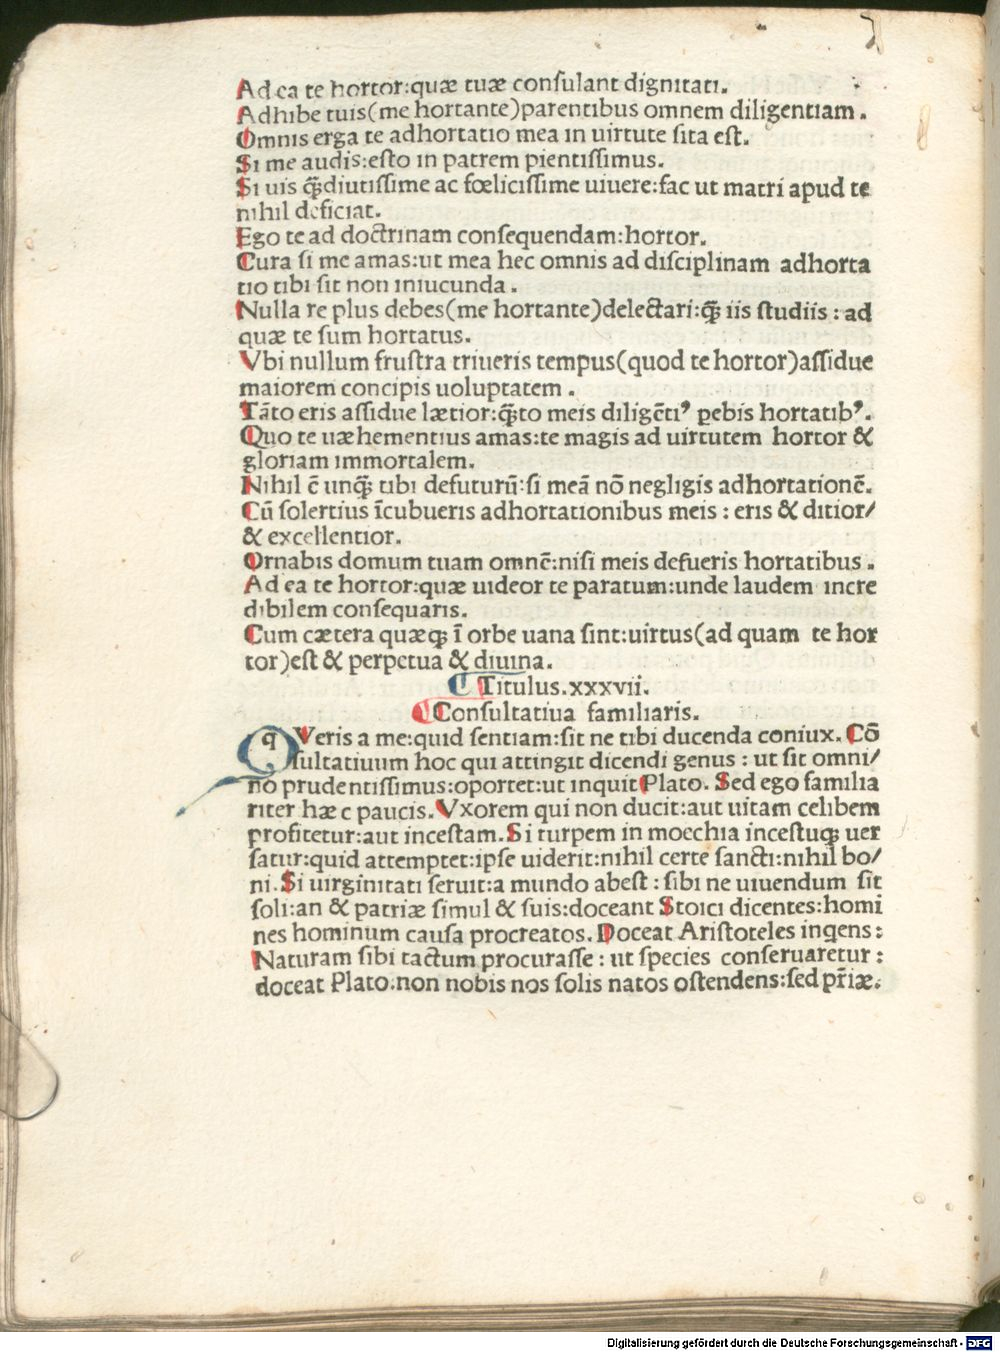 Ad ea te hortor:quæ tuæ consulant dignitati.
Adhibe tuis(me hortante)parentibus omnem diligentiam.
Omnis erga te adhortatio mea in uirtute sita est.
Si me audis:esto in patrem pientissimus.
Si uis q̃diutissime ac fœlicissime uiuere:fac ut matri apud te
nihil deficiat.
Ego te ad doctrinam consequendam:hortor.
Cura si me amas:ut mea hec omnis ad disciplinam adhorta
tio tibi sit non iniucunda.
Nulla re plus debes(me hortante)delectari:q̃ iis studiis:ad
quæ te sum hortatus.
Vbi nullum frustra triueris tempus(quod te hortor)assidue
maiorem concipis uoluptatem.
Tāto eris assidue lætior:q̃to meis diligēti⁹ ꝑebis hortatib⁹.
Quo te uæhementius amas:te magis ad uirtutem hortor &
gloriam immortalem.
Nihil ē unq̃ tibi defuturū:si meā nō negligis adhortationē.
Cū solertius īcubueris adhortationibus meis:eris & ditior/
& excellentior.
Ornabis domum tuam omnē:nisi meis defueris hortatibus.
Ad ea te hortor:quæ uideor te paratum:unde laudem incre
dibilem consequaris.
Cum cætera quæqꝫ ī orbe uana sint:uirtus(ad quam te hor
tor)est & perpetua & diuina.
Titulus.xxxvii.
Consultatiua familiaris.
q Veris a me:quid sentiam:sit ne tibi ducenda coniux. Cō
sultatiuum hoc qui attingit dicendi genus:ut sit omni/
no prudentissimus:oportet:ut inquit Plato. Sed ego familia
riter hæc paucis. Vxorem qui non ducit:aut uitam celibem
profitetur:aut incestam. Si turpem in moechia incestuqꝫ uer
satur:quid attemptet:ipse uiderit:nihil certe sancti:nihil bo/
ni. Si uirginitati seruit:a mundo abest:sibi ne uiuendum sit
soli:an & patriæ simul & suis:doceant Stoici dicentes:homi
nes hominum causa procreatos. Doceat Aristoteles ingens:
Naturam sibi tactum procurasse:ut species conseruaretur:
doceat Plato:non nobis nos solis natos ostendens:sed pr̄iæ:
Digitalisierung gefördert durch die Deutsche Forschungsgemeinschaft - DFG